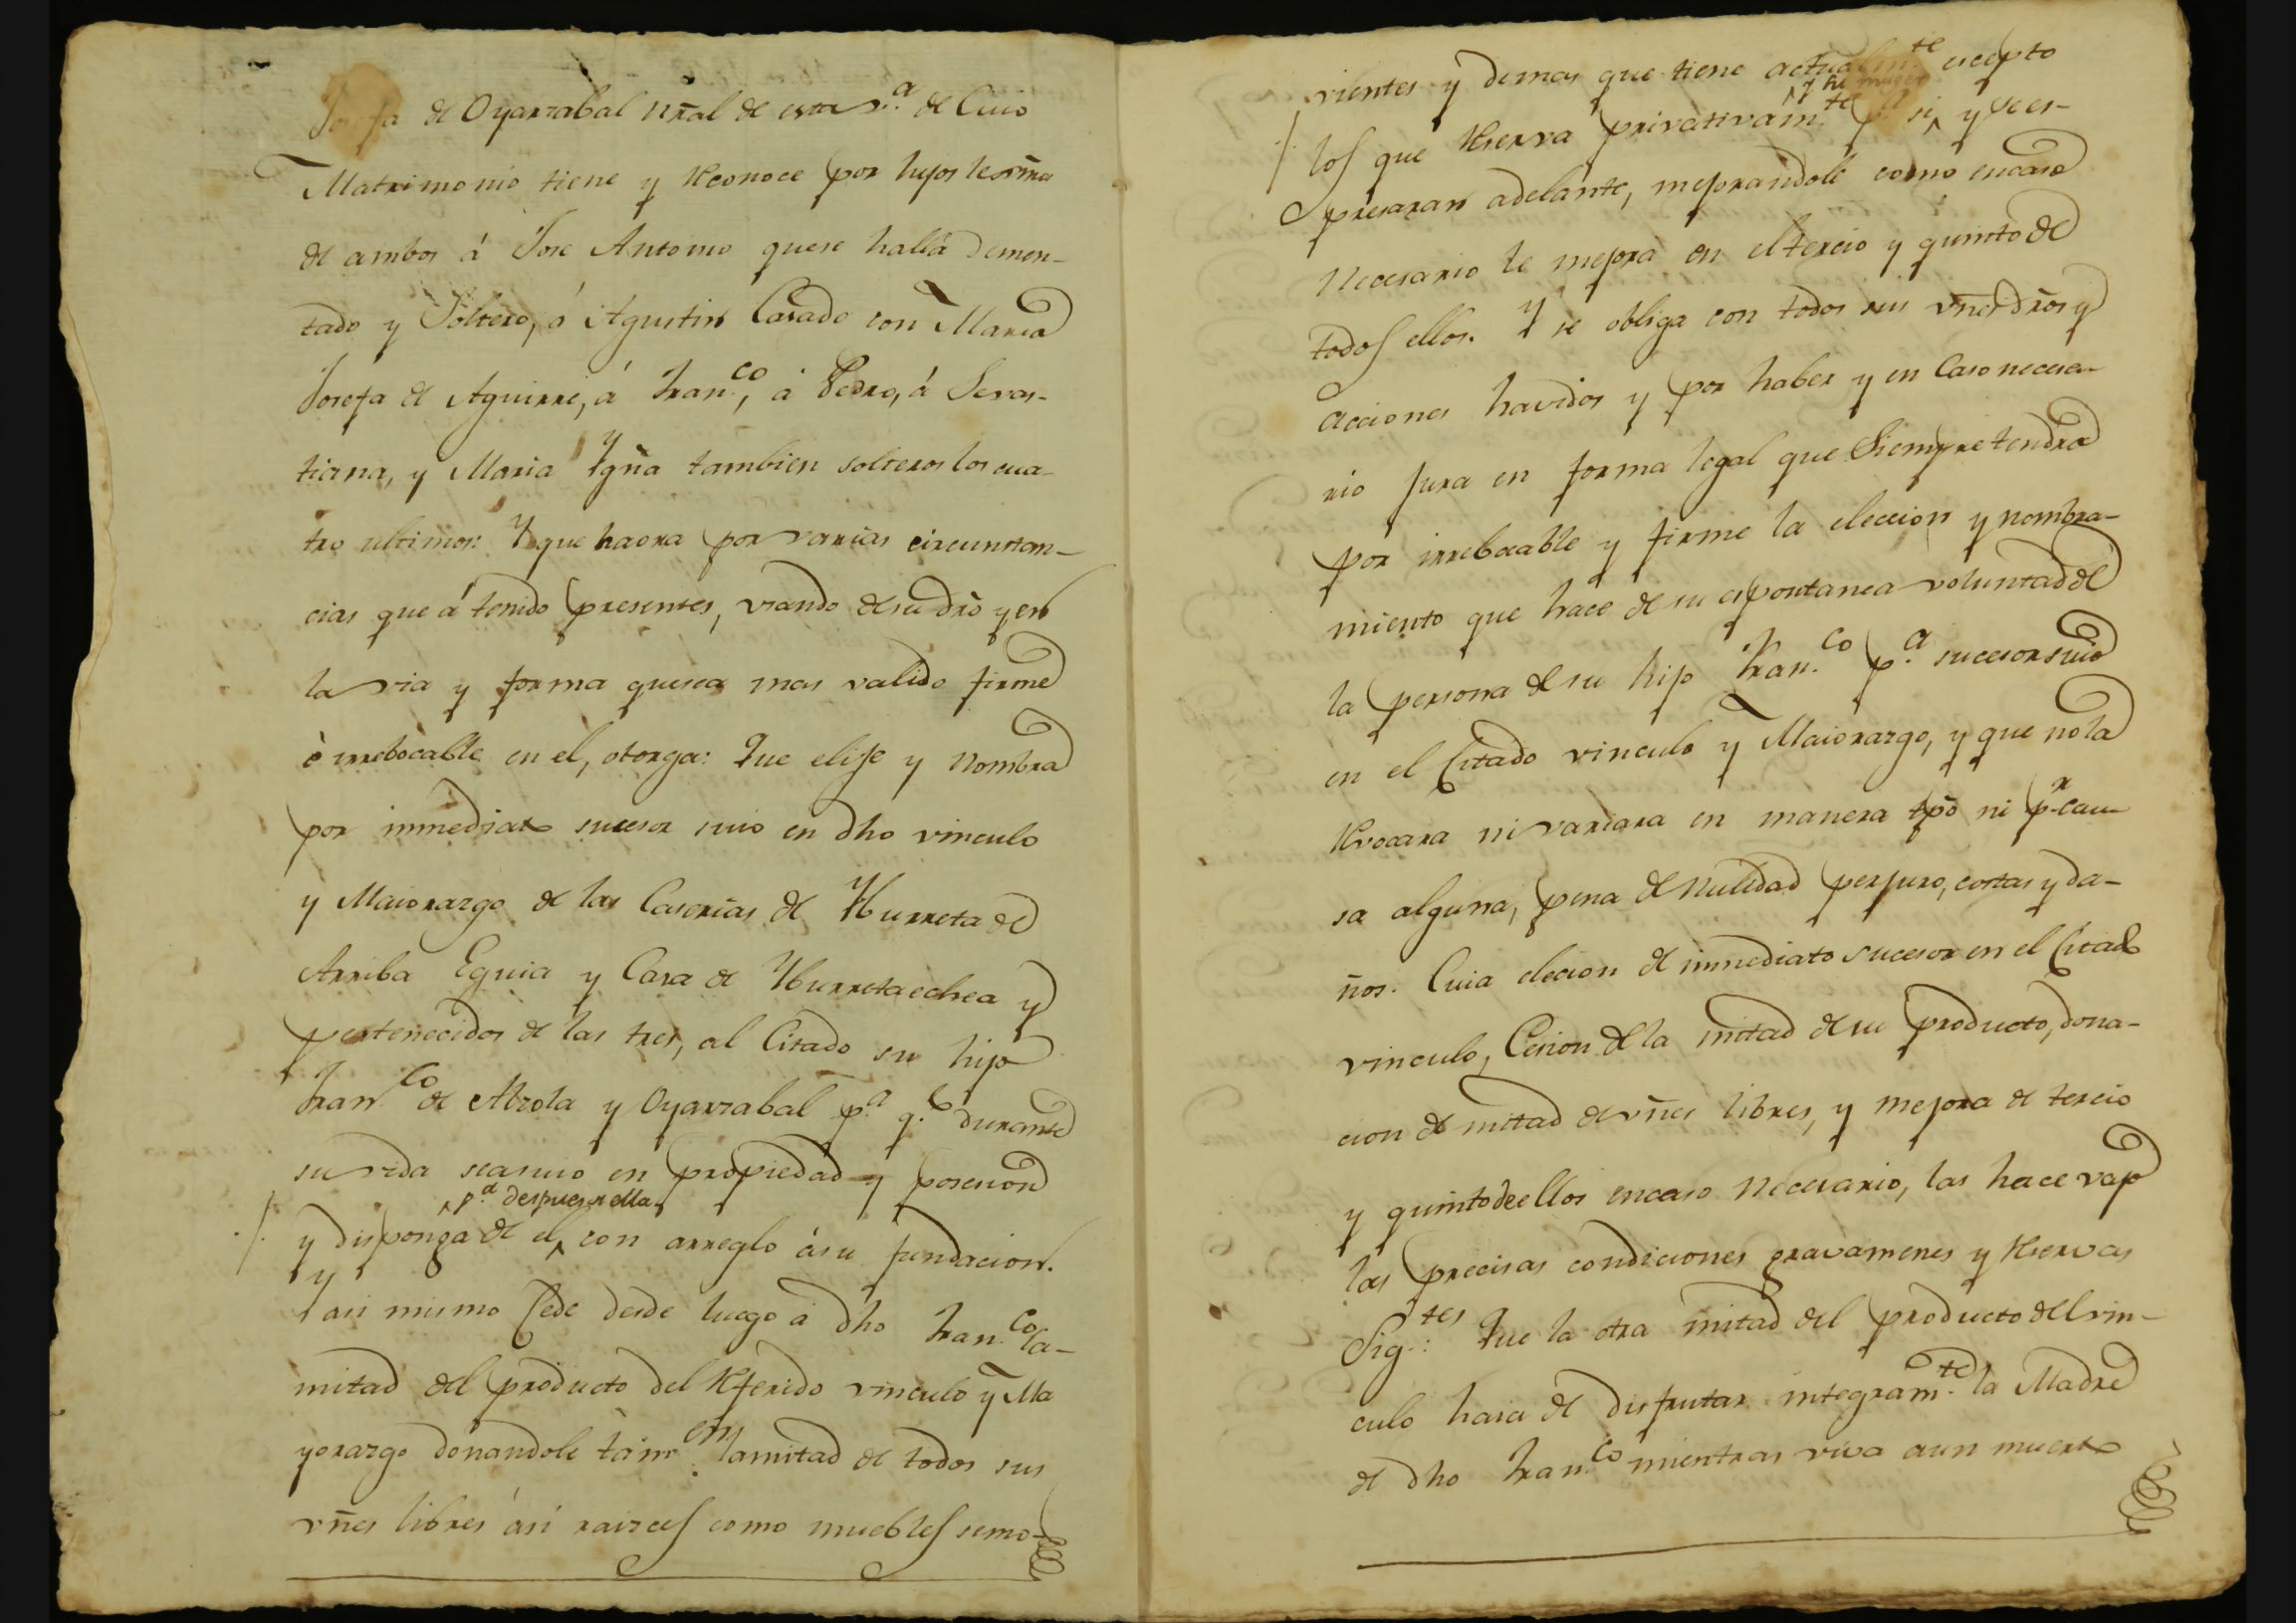 Josefa de Oyarzabal nr̃al de esta v.ª de Cuio
Matrimonio tiene y Reconoce por hijos lexmos
de ambos á Jose Antonio quese halla demen-
tado y Soltero, á Agustin Casado con Maria
Josefa de Aguirre, á Fran.co, á Pedro, á Sevas-
tiana, y Maria Ygña tambien solteros los cua-
tro ultimos: Y que haora por varias circunstan-
cias que á tenido presentes, vsando desu dr̃o y en
la via y forma quesea mas valido firme
è irrebocable en el, otorga: Que elije y Nombra
por inmediato sucesor suio en dho vinculo
y Maiorazgo de las Caserias de Yturreta de
Arriba Eguia y Casa de Yturretaechea y
pertenecidos de las tres, al Citado su hijo
Fran.co de Alzola y Oyarzabal p.ª q.e durante
su vida seasuio en propiedad y posesion
p.ª despues de ella
y disponga de el, con arreglo ásu fundacion.
Y asi mismo Cede desde luego á dho Fran.co la-
mitad del producto del Referido vinculo y Ma
yorazgo donandole tam.en lamitad de todos sus
vñes libres ási raizes como muebles semo-
vientes y demas que tiene actualm.te escepto
y su muger
los que Reserva privativam.te p.ª si, y se es-
presaran adelante, mejorandole como encaso
Necesario le mejora en eltercio y quinto de
todos ellos. Y se obliga con todos sus vñes dr̃os y
acciones havidos y por haber y en Caso necesa-
rio Jura en forma legal que Siempre tendra
por irrebocable y firme la eleccion y nombra-
miento que hace de su espontanea voluntad de
la persona de su hijo Fran.co p.ª sucesor suio
en el Citado vinculo y Maiorazgo, y que no la
Revocara ni variara en manera tpõ ni p.r cau-
sa alguna, pena de Nulidad perjuro, costas y da-
ños. Cuia elecion de inmediato sucesor en el Citado
vinculo, Cesion de la mitad de su producto, dona-
cion de mitad de vñes libres, y mejora de tercio
y quinto de ellos encaso Necesario, las hace vajo
las precisas condiciones gravamenes y Reservas
Sig.tes: Que la otra mitad del producto del vin-
culo haia de disfrutar integram.te la Madre
de dho Fran.co mientras viva aun muerto